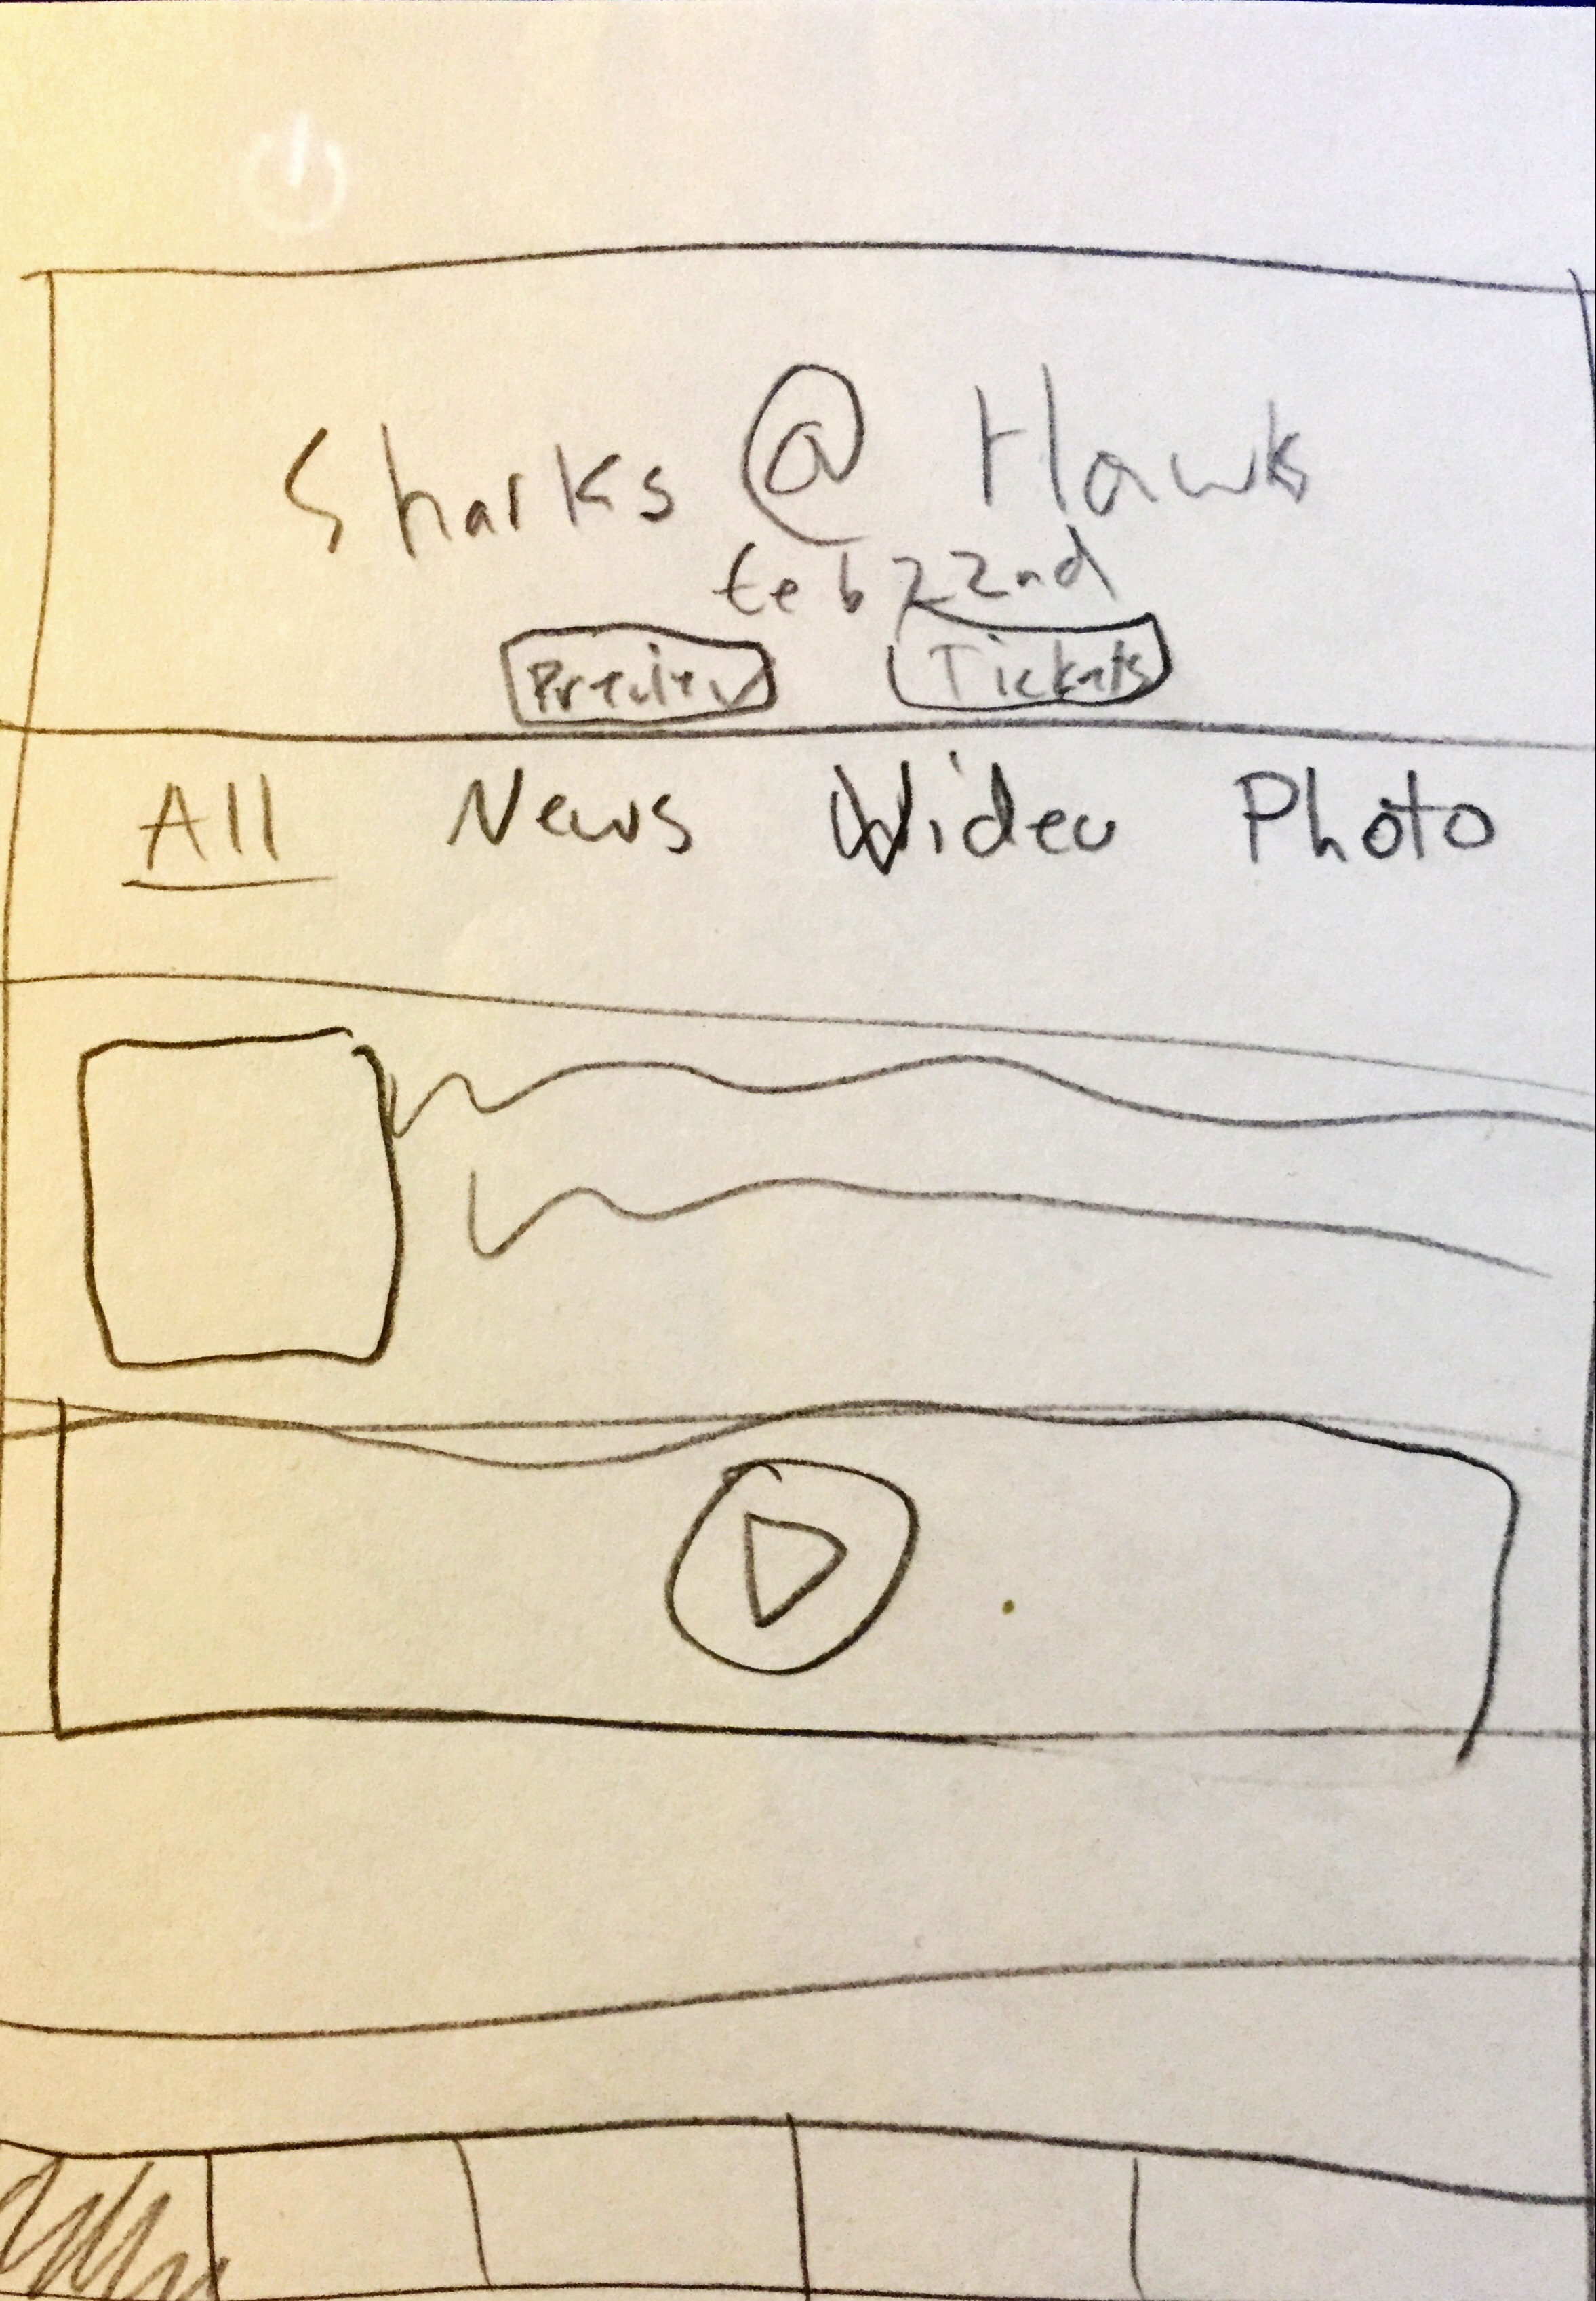 Sharks @ Hawks
feb 22nd
Preview Tickets
All News Video Photo